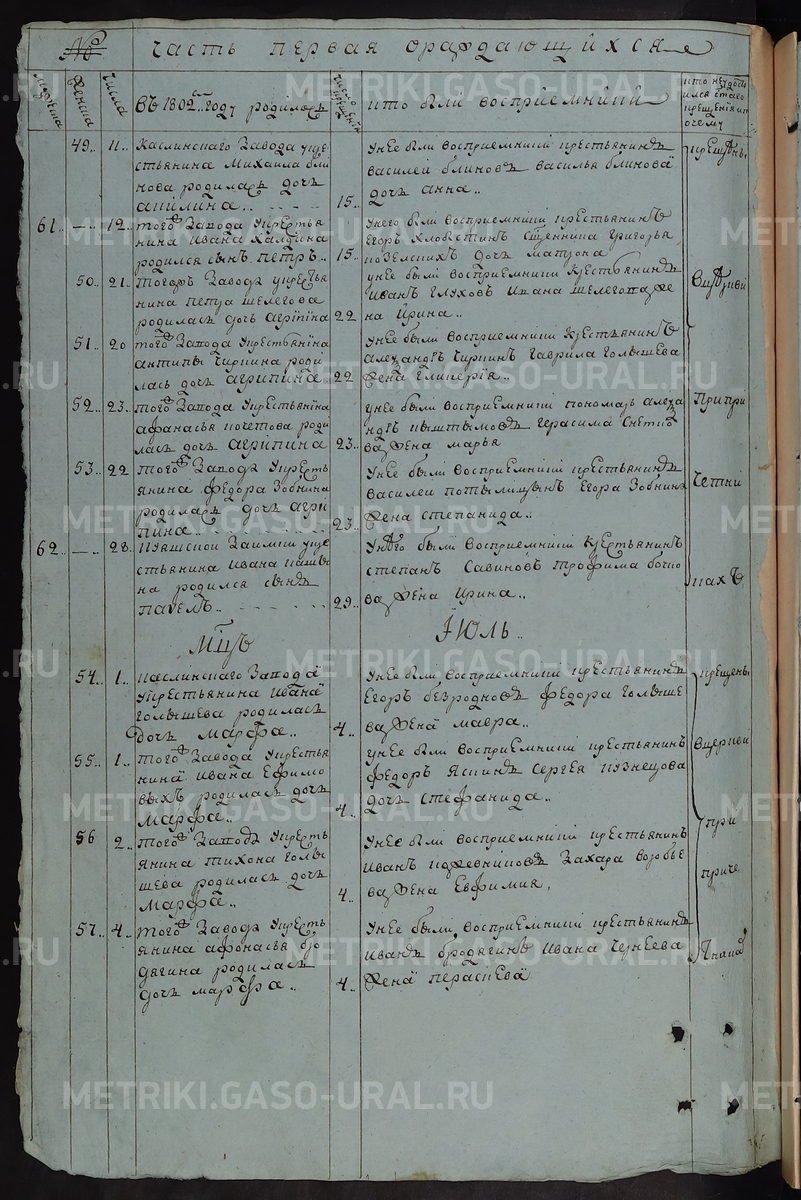 № Часть первая ораждающихся
мужеска
женска
числа
Въ 1802м году родились
кто были восприемники
49.. 11.. Каслинскаго Завода укре
стьянина Михаила бли
нова родилась дочь
акилина..
15..
унее были восприемники крестьянинъ
василей блиновъ василья блинова
дочь анна..
крещены
61.. —.. 12.. того Завода укрестья
нина Ивана Халдина
родился сынъ петръ..
15..
унего были восприемники крестьянинъ
Егоръ Хлобыстинъ Григорья
дочь матрона
50.. 21.. тогожъ Завода укрестья
нина петра шелегова
родилась дочь агрипина
22
унее были восприемники крестьянинъ
Иванъ Глуховъ Ивана шелегова же
на Ирина..
51.. 20 того Завода укрестьянина
антипы Чиркина роди
лась дочь агрипина
22
унее были восприемники крестьянинъ
александръ Чиркинъ Гаврила Голышева
жена Гликерия..
52.. 23.. того Завода укрестьянина
афанасья кочетова роди
лась дочь агрипина
23..
унее были восприемники пономарь алекса
ндръ кыштымовъ Герасима
ва жена марья
При при
53.. 22 того Завода укресть
янина федора Зобнина
родилась дочь агри
пина..
23..
унее были восприемники крестьянинъ
василей потылицынъ Егора Зобнина
жена степанида..
четни
62.. —.. 28.. Заимки укре
стьянина Ивана
на родился сынъ
павелъ..
29..
унего были восприемники крестьянинъ
степанъ Савиновъ трофима
ва жена Ирина..
кахъ
Мцъ Июль..
54.. 1.. Каслинскаго Завода
укрестьянина Ивана
Голышева родилась
дочь Марфа..
4..
унее были восприемники крестьянинъ
Егоръ безродновъ федора Голыше
ва жена мавра..
крещены
55.. 1.. того Завода укрестья
нина Ивана Ефимо
выхъ родилась дочь
Марфа..
4..
унее были восприемники крестьянинъ
федоръ Яскинъ Сергея кузнецова
дочь Стефанида..
вцеркви
56 2.. того Завода укресть
янина тихона Голы
шева родилась дочь
Марфа..
4..
унее были восприемники крестьянинъ
Иванъ кожевниковъ Захара воробье
ва жена Евфимия,
при
приче
57.. 4.. того Завода укресть
янина афонасья бро
дягина родилась
дочь марфа..
4..
унее были восприемники крестьянинъ
Иванъ бродягинъ Ивана Чернеева
жена параскева
METRIKI.GASO-URAL.RU